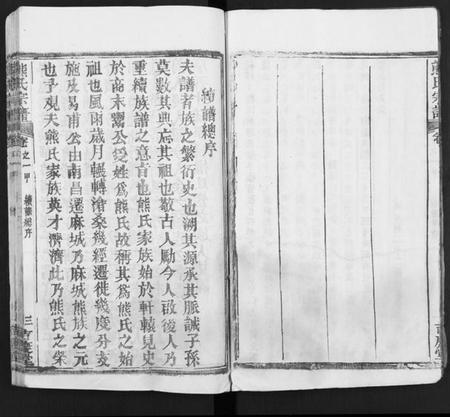 熊氏宗譜
續譜總序
夫譜者族之繁衍史也溯其源承其脈誠子孫
莫數其典忘其祖也敬古人勵今人啟後人乃
重續族譜之意旨也熊氏家族始於軒轅見史
於商末鬻公受姓為熊氏故稱其為熊氏之始
祖也風雨歲月輾轉滄桑幾經遷徙幾度分支
施及易甫公由南昌遷麻城乃麻城熊族之元
也予觀夫熊氏家族英才濟濟此乃熊氏之榮
熊氏宗譜
卷之一甲
續譜總序
三